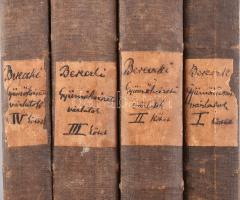 Bereczki
Gyümölcsészeti
vázlatok
IV kötet
Bereczki
Gyümölcsészeti
vázlatok
III kötet
Bereczki
Gyümölcsészeti
vázlatok
II kötet
Bereczki
Gyümölcsészeti
vázlatok
I kötet